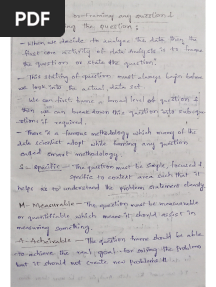 PDF
the question :
- When we decide to analyze the data then the
first core activity of data analysis is to frame
the question or state the question!
- This stating of question must always happen before
we look into the actual data set.
We can first have a broad level of question &
then we can boil down this question into subques
tions if required.
- There is a famous methodology which many of the
data scientist adopt while framing any question
called smart methodology.
S - Specific - The question must be simple, focused &
specific to context area such that it
helps us to understand the problem statement clearly
M - Measurable - The question must be measurable
or quantifiable which means it should assist in
measuring something.
A - Achievable - The question frame should be able
to achieve the goal, goal for solving the problem
but it should not create new problems